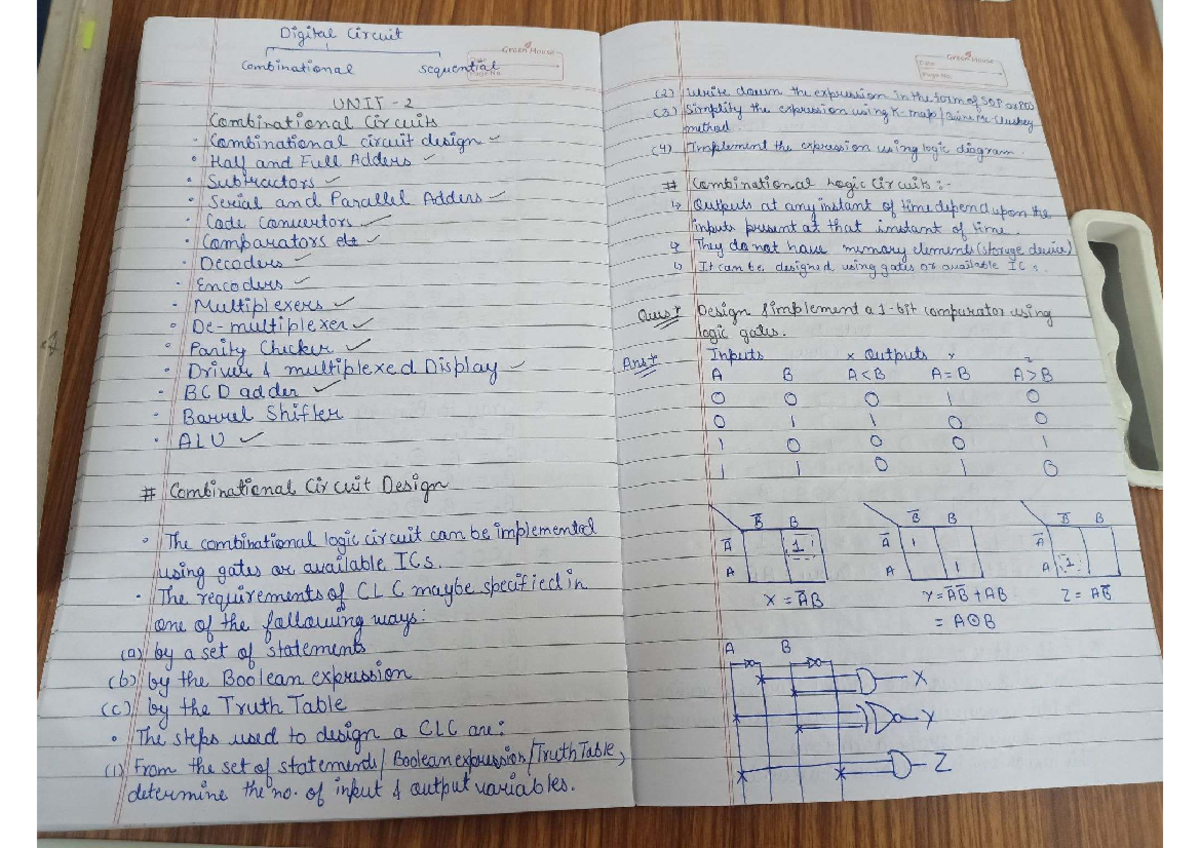 Digital Circuit
Combinational sequential
Green House
Page No.
UNIT - 2
Combinational Circuits
· Combinational circuit design ✓
· Half and Full Adders ✓
· Subtractors ✓
· Serial and Parallel Adders ✓
· Code Convertors ✓
· Comparators etc ✓
· Decoders ✓
· Encoders ✓
· Multiplexers ✓
· De-multiplexer ✓
· Parity Checker ✓
· Driver & multiplexed Display ✓
· BCD adder ✓
· Barrel Shifter
· ALU ✓
# Combinational Circuit Design
· The combinational logic circuit can be implemented
using gates or available ICs.
· The requirements of CLC maybe specified in
one of the following ways:
(a) by a set of statements
(b) by the Boolean expression
(c) by the Truth Table
· The steps used to design a CLC are:
(1) From the set of statements / Boolean expression / Truth Table,
determine the no. of input & output variables.
Green House
Date
Page No.
(2) Write down the expression in the form of SOP or POS
(3) Simplify the expression using K-map / Quine Mc Cluskey
method.
(4) Implement the expression using logic diagram.
# Combinational Logic Circuits :-
↳ Outputs at any instant of time depend upon the
inputs present at that instant of time.
↳ They do not have memory elements (storage device)
↳ It can be designed using gates or available ICs.
Ques Design & implement a 1-bit comparator using
logic gates.
Ans Inputs X Outputs Y Z
A B A<B A=B A>B
0 0 0 1 0
0 1 1 0 0
1 0 0 0 1
1 1 0 1 0
B̅ B B̅ B B̅ B
A̅ 1 A̅ 1 A̅
A A 1 A 1
X = A̅B Y = A̅B̅ + AB Z = AB̅
= A⊙B
A B
X
Y
Z